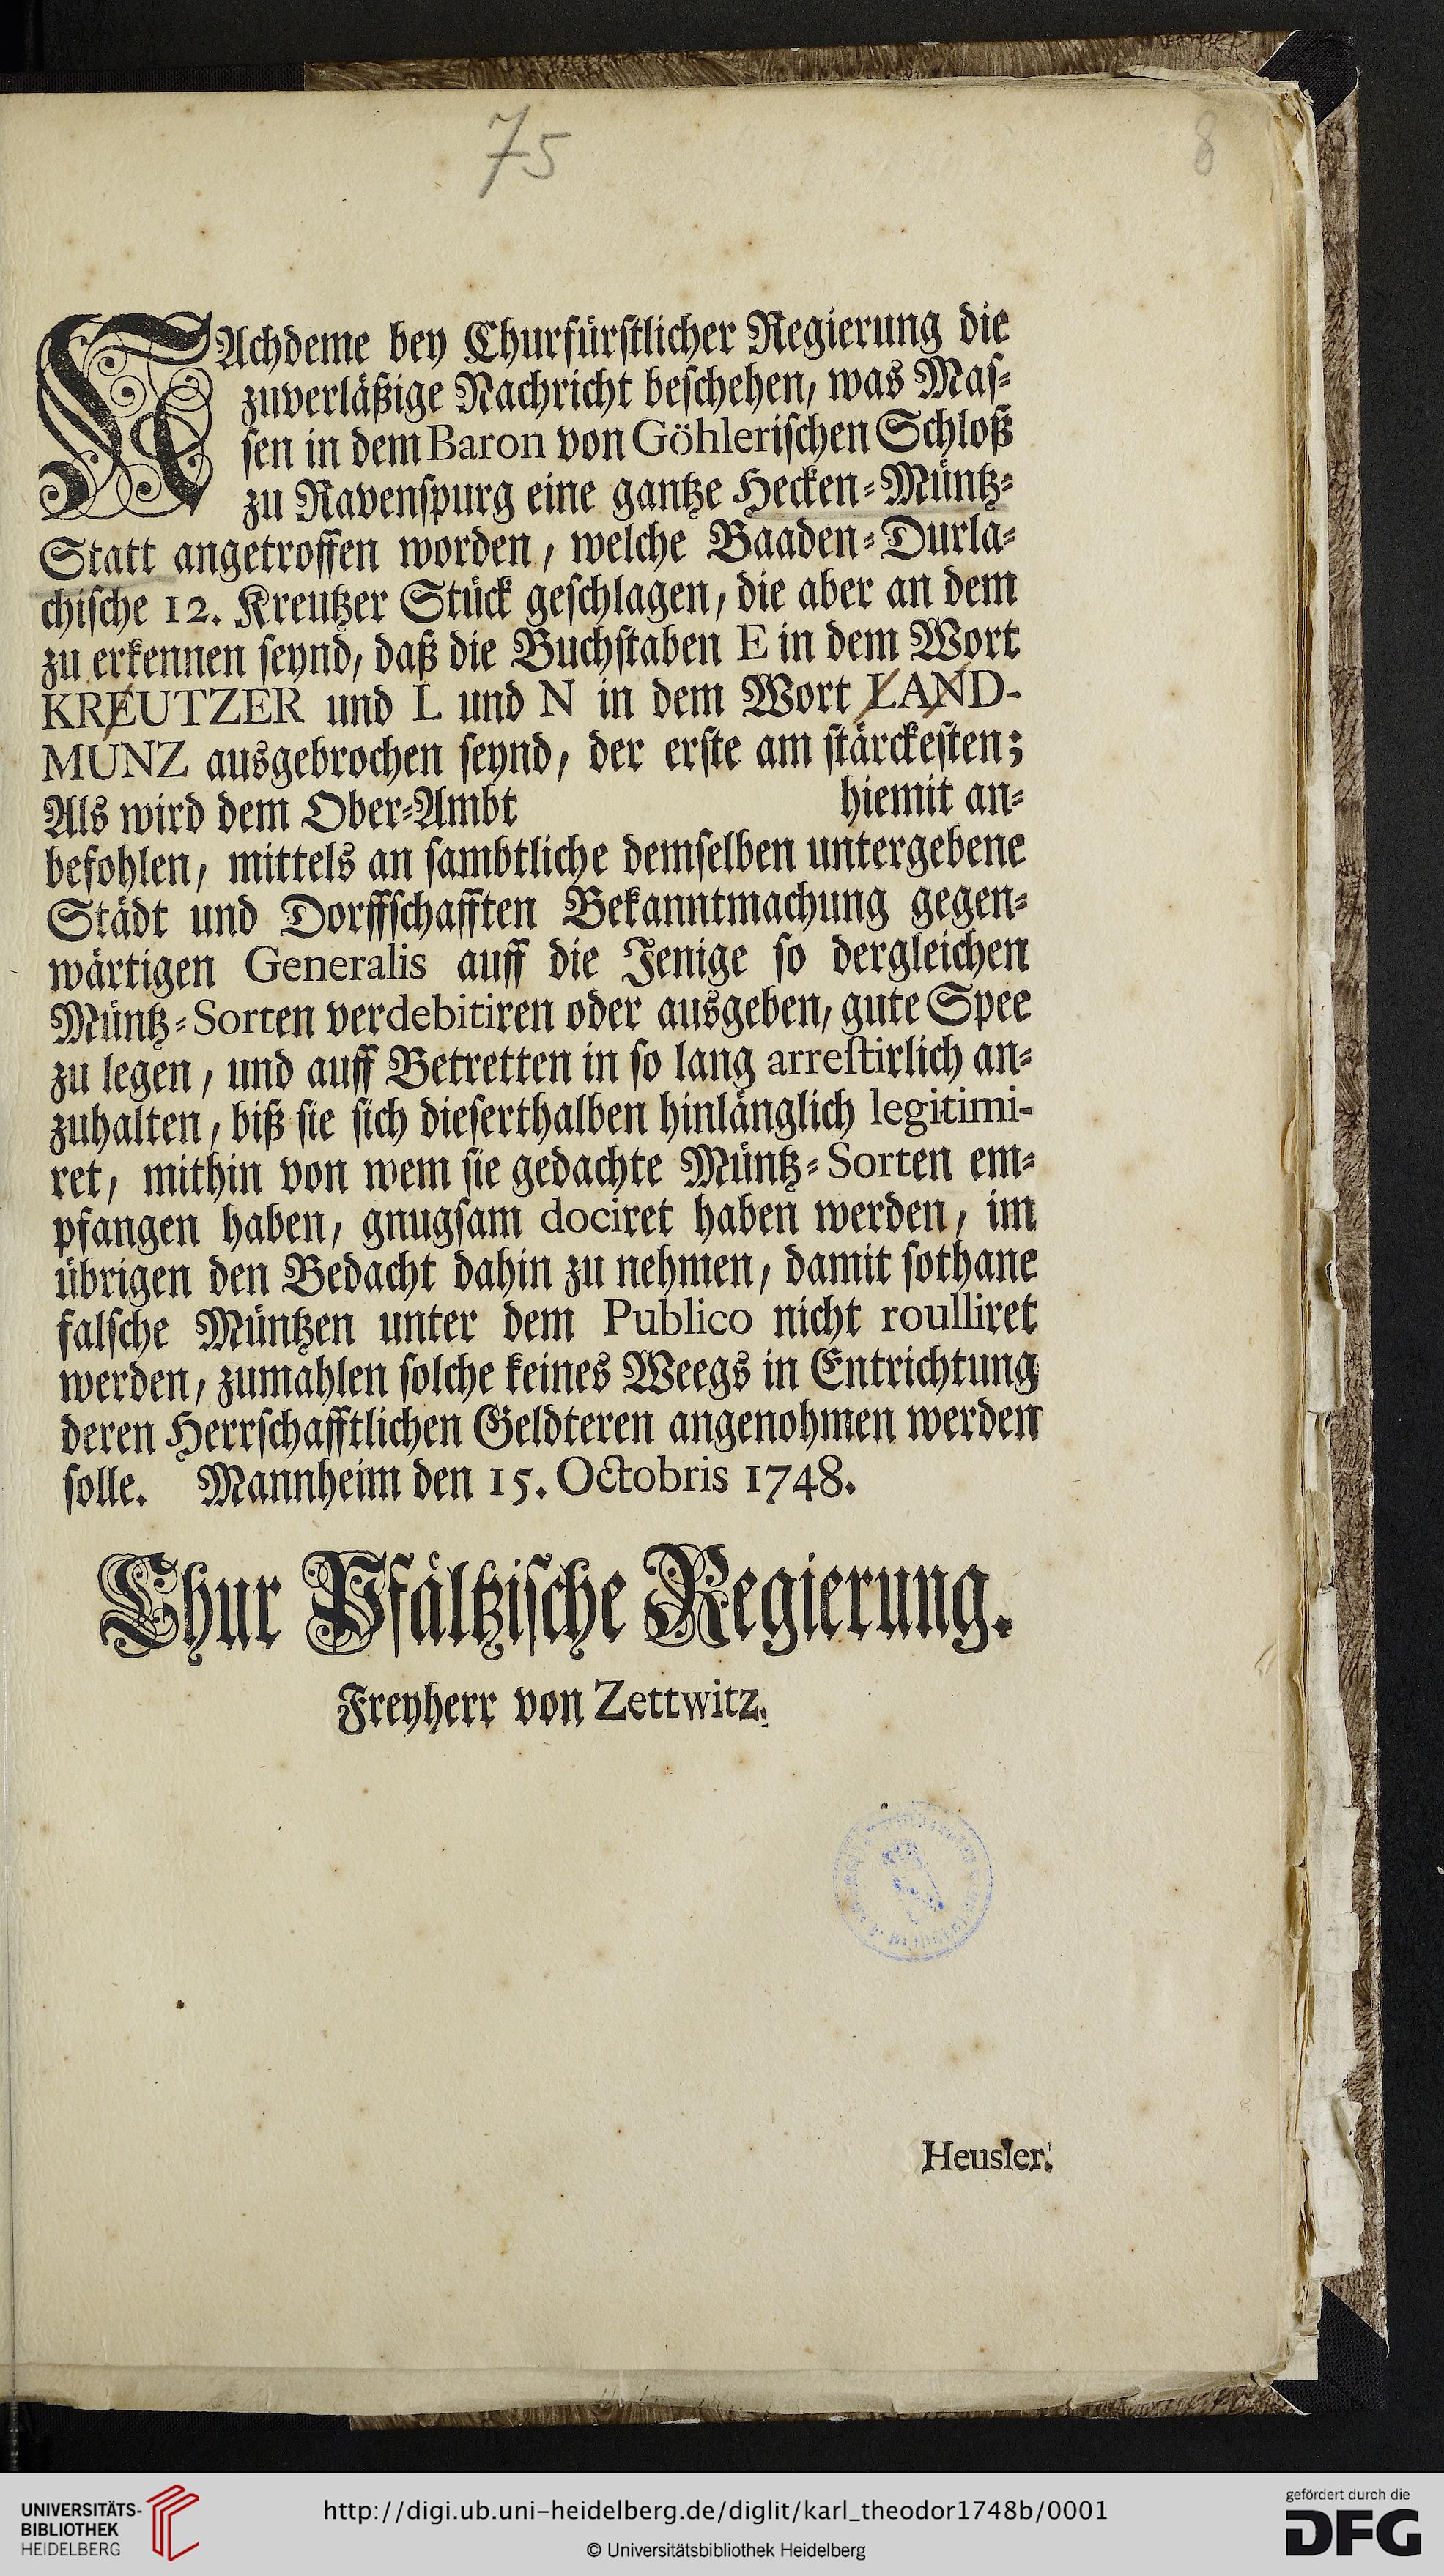 75
8
NAchdeme bey Churfürstlicher Regierung die
zuverläßige Nachricht beschehen, was Mas-
sen in dem Baron von Göhlerischen Schloß
zu Ravenspurg eine gantze Hecken-Müntz-
Statt angetroffen worden, welche Baaden-Durla-
chische 12. Kreutzer Stück geschlagen, die aber an dem
zu erkennen seynd, daß die Buchstaben E in dem Wort
KREUTZER und L und N in dem Wort LAND-
MUNZ ausgebrochen seynd, der erste am stärckesten;
Als wird dem Ober-Ambt hiemit an-
befohlen, mittels an sambtliche demselben untergebene
Städt und Dorffschafften Bekanntmachung gegen-
wärtigen Generalis auff die Jenige so dergleichen
Müntz-Sorten verdebitiren oder ausgeben, gute Spee
zu legen, und auff Betretten in so lang arrestirlich an-
zuhalten, biß sie sich dieserthalben hinlänglich legitimi-
ret, mithin von wem sie gedachte Müntz-Sorten em-
pfangen haben, gnugsam dociret haben werden, im
übrigen den Bedacht dahin zu nehmen, damit sothane
falsche Müntzen unter dem Publico nicht roulliret
werden, zumahlen solche keines Weegs in Entrichtung
deren Herrschafftlichen Geldteren angenohmen werden
solle. Mannheim den 15. Octobris 1748.
Chur Pfältzische Regierung.
Freyherr von Zettwitz.
Heusler.
UNIVERSITÄTS-
BIBLIOTHEK
HEIDELBERG
http://digi.ub.uni-heidelberg.de/diglit/karl_theodor1748b/0001
© Universitätsbibliothek Heidelberg
gefördert durch die
DFG